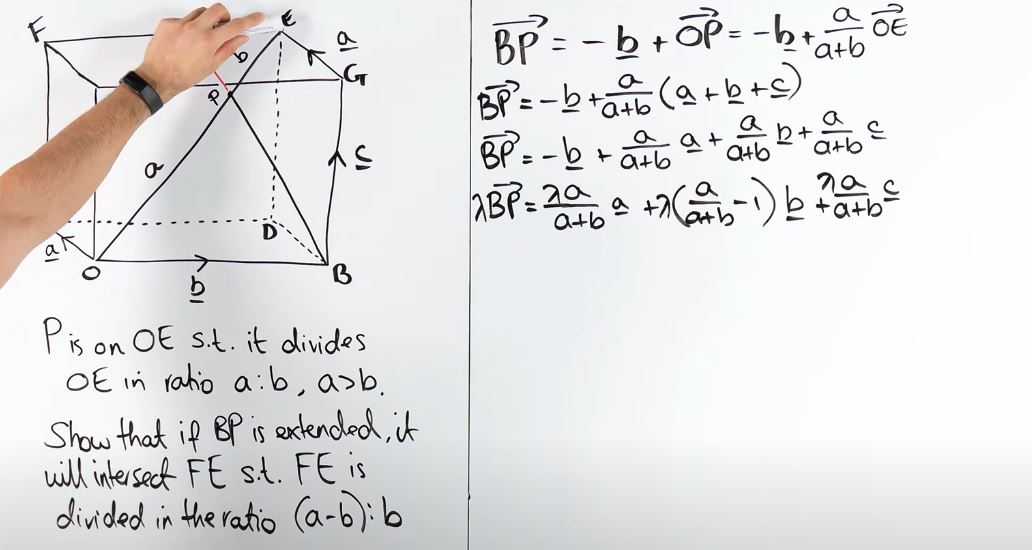 F
E
a
b
G
P
a
c
D
a
O
B
b
P is on OE s.t. it divides
OE in ratio a:b, a>b.
Show that if BP is extended, it
will intersect FE s.t. FE is
divided in the ratio (a-b):b
BP = - b + OP = - b + a/(a+b) OE
BP = - b + a/(a+b) (a + b + c)
BP = - b + a/(a+b) a + a/(a+b) b + a/(a+b) c
λBP = λa/(a+b) a + λ(a/(a+b) - 1) b + λa/(a+b) c